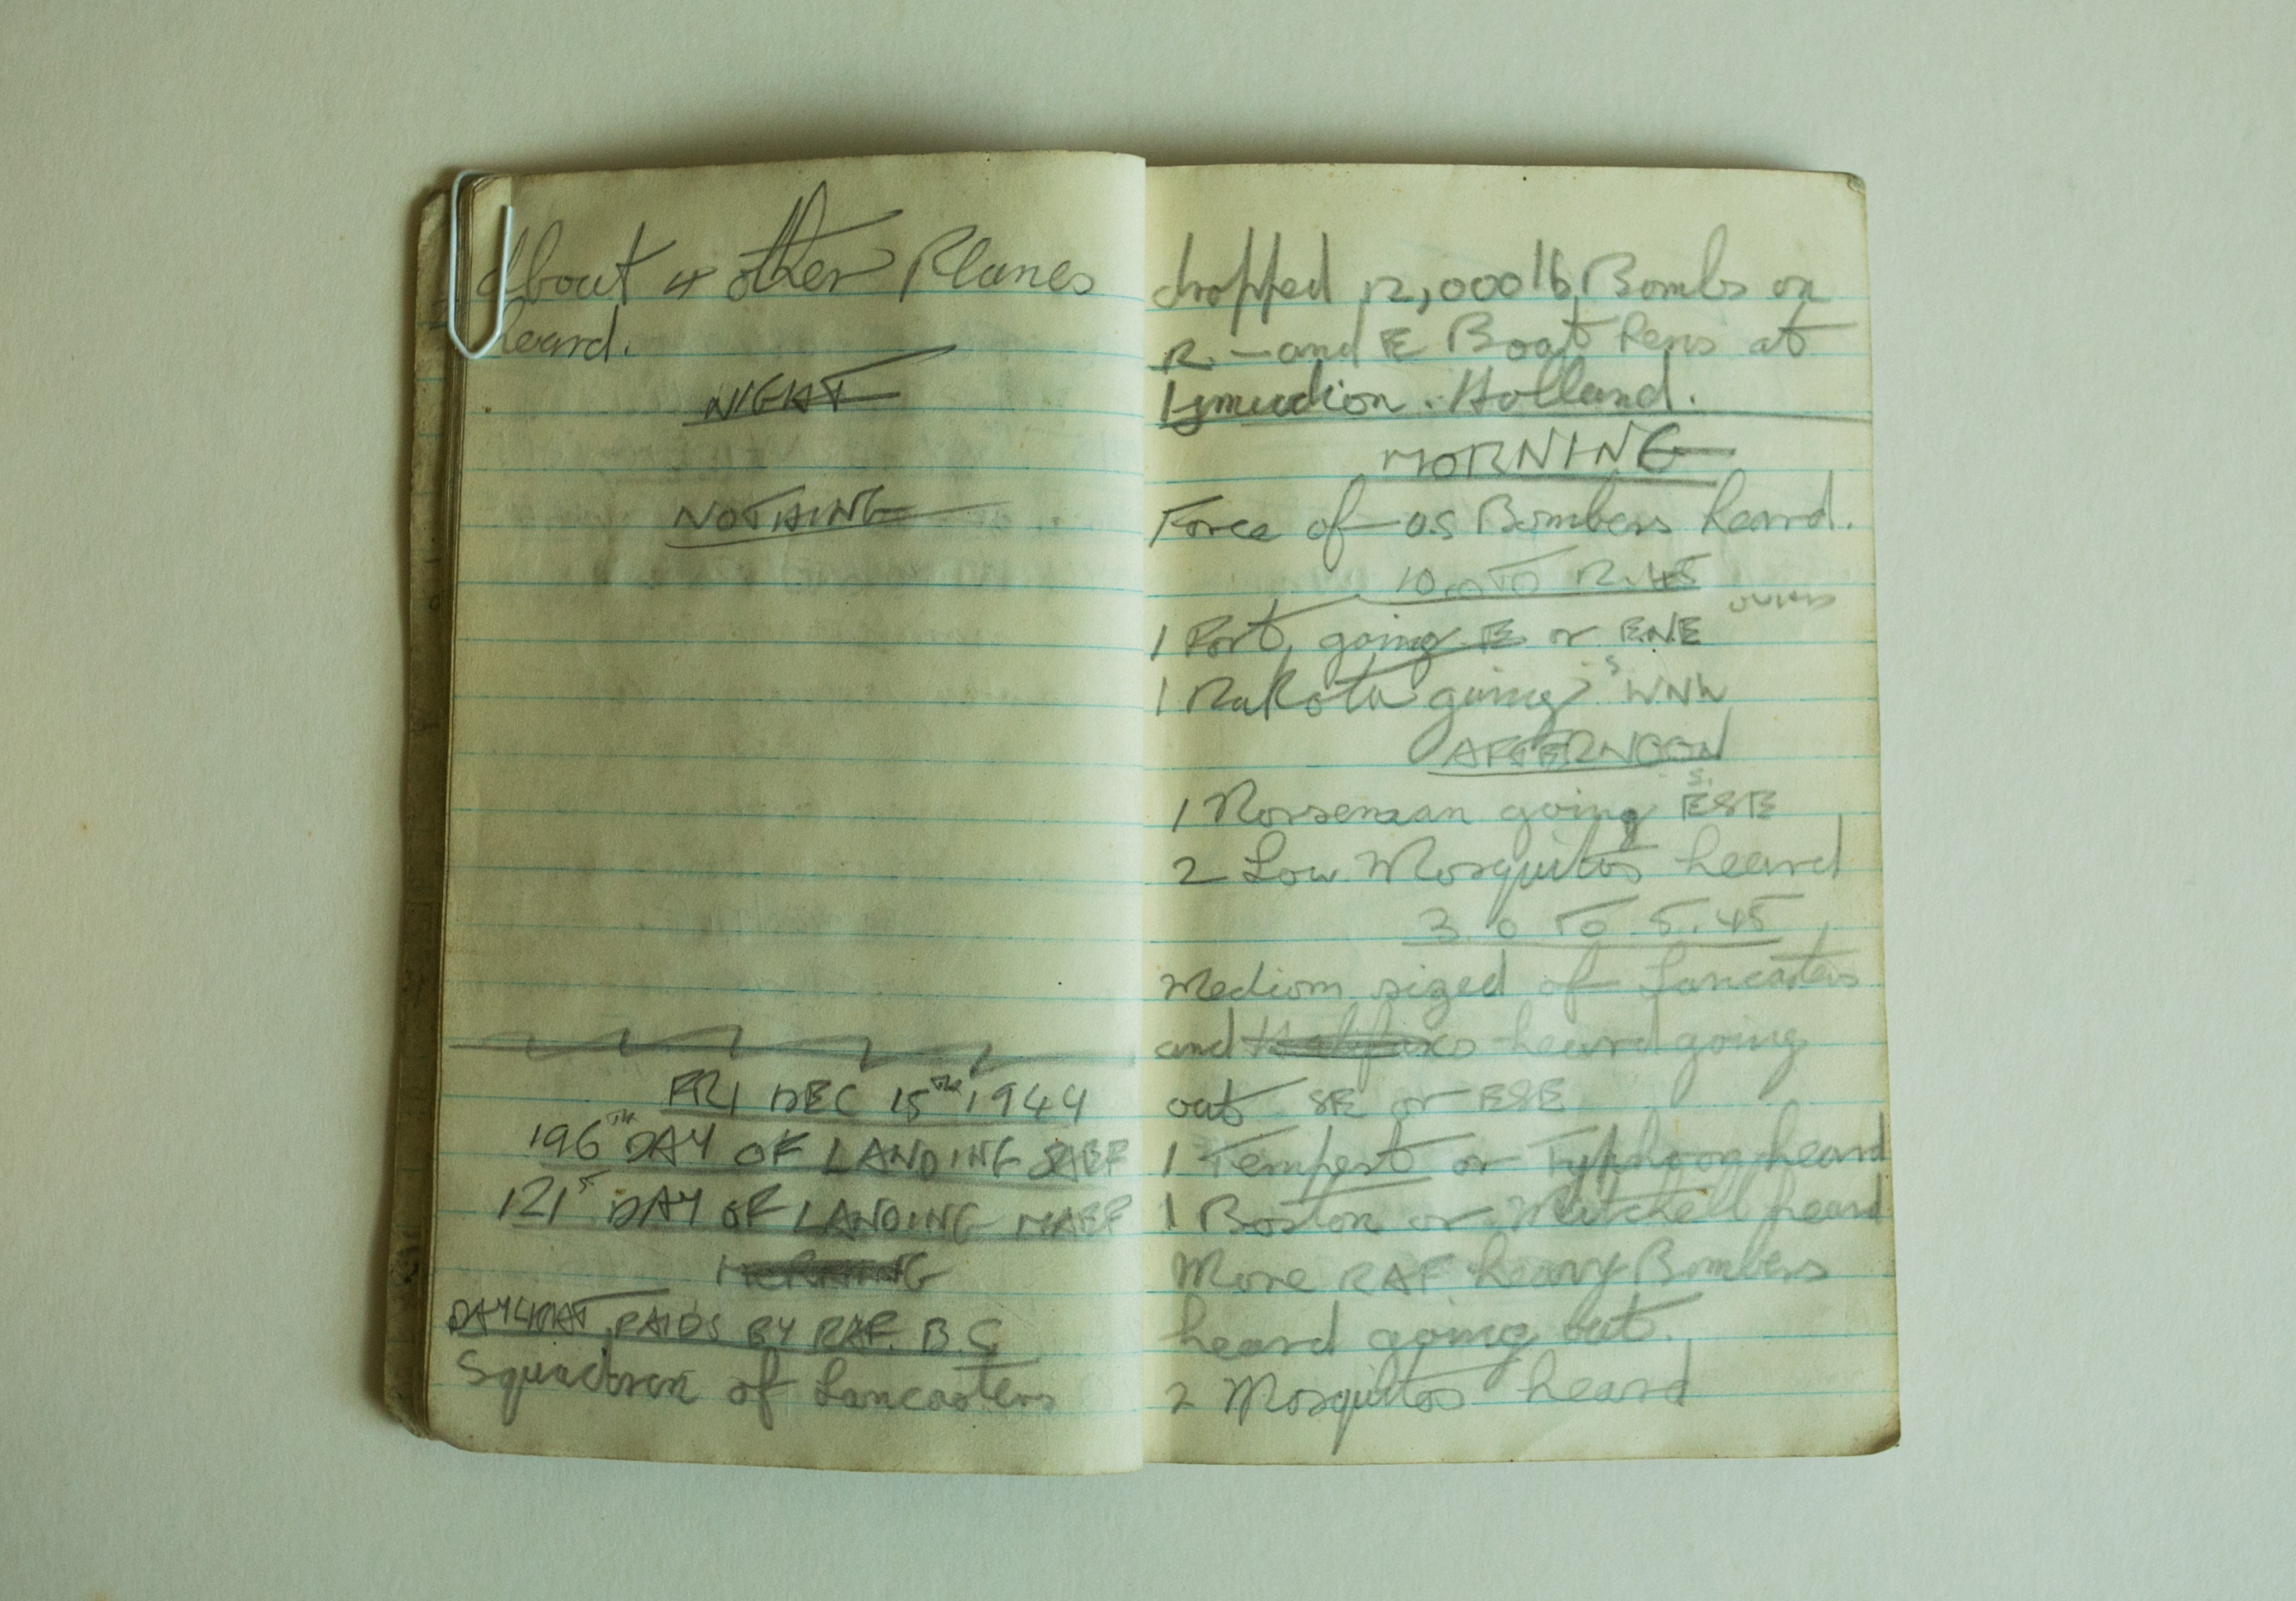 About 4 other Planes
heard.
NIGHT
NOTHING
FRI DEC 15TH 1944
196TH DAY OF LANDING
121ST DAY OF LANDING
MORNING
DAYLIGHT RAIDS BY RAF. B.C
Squadron of Lancasters
dropped 12,000 lb Bombs on
R. - and E Boat Pens at
Holland.
MORNING
Force of U.S Bombers heard.
10.0 TO 12.45
1 Fort, going E or ENE
1 Dakota going WNW
AFTERNOON
1 Norseman going ESE
2 Low Mosquitos heard
3.0 TO 5.45
Medium sized of Lancasters
and Halifaxes heard going
out SE or ESE
1 Tempest or Typhoon heard
1 Boston or Mitchell heard
More RAF heavy Bombers
heard going out.
2 Mosquitos heard